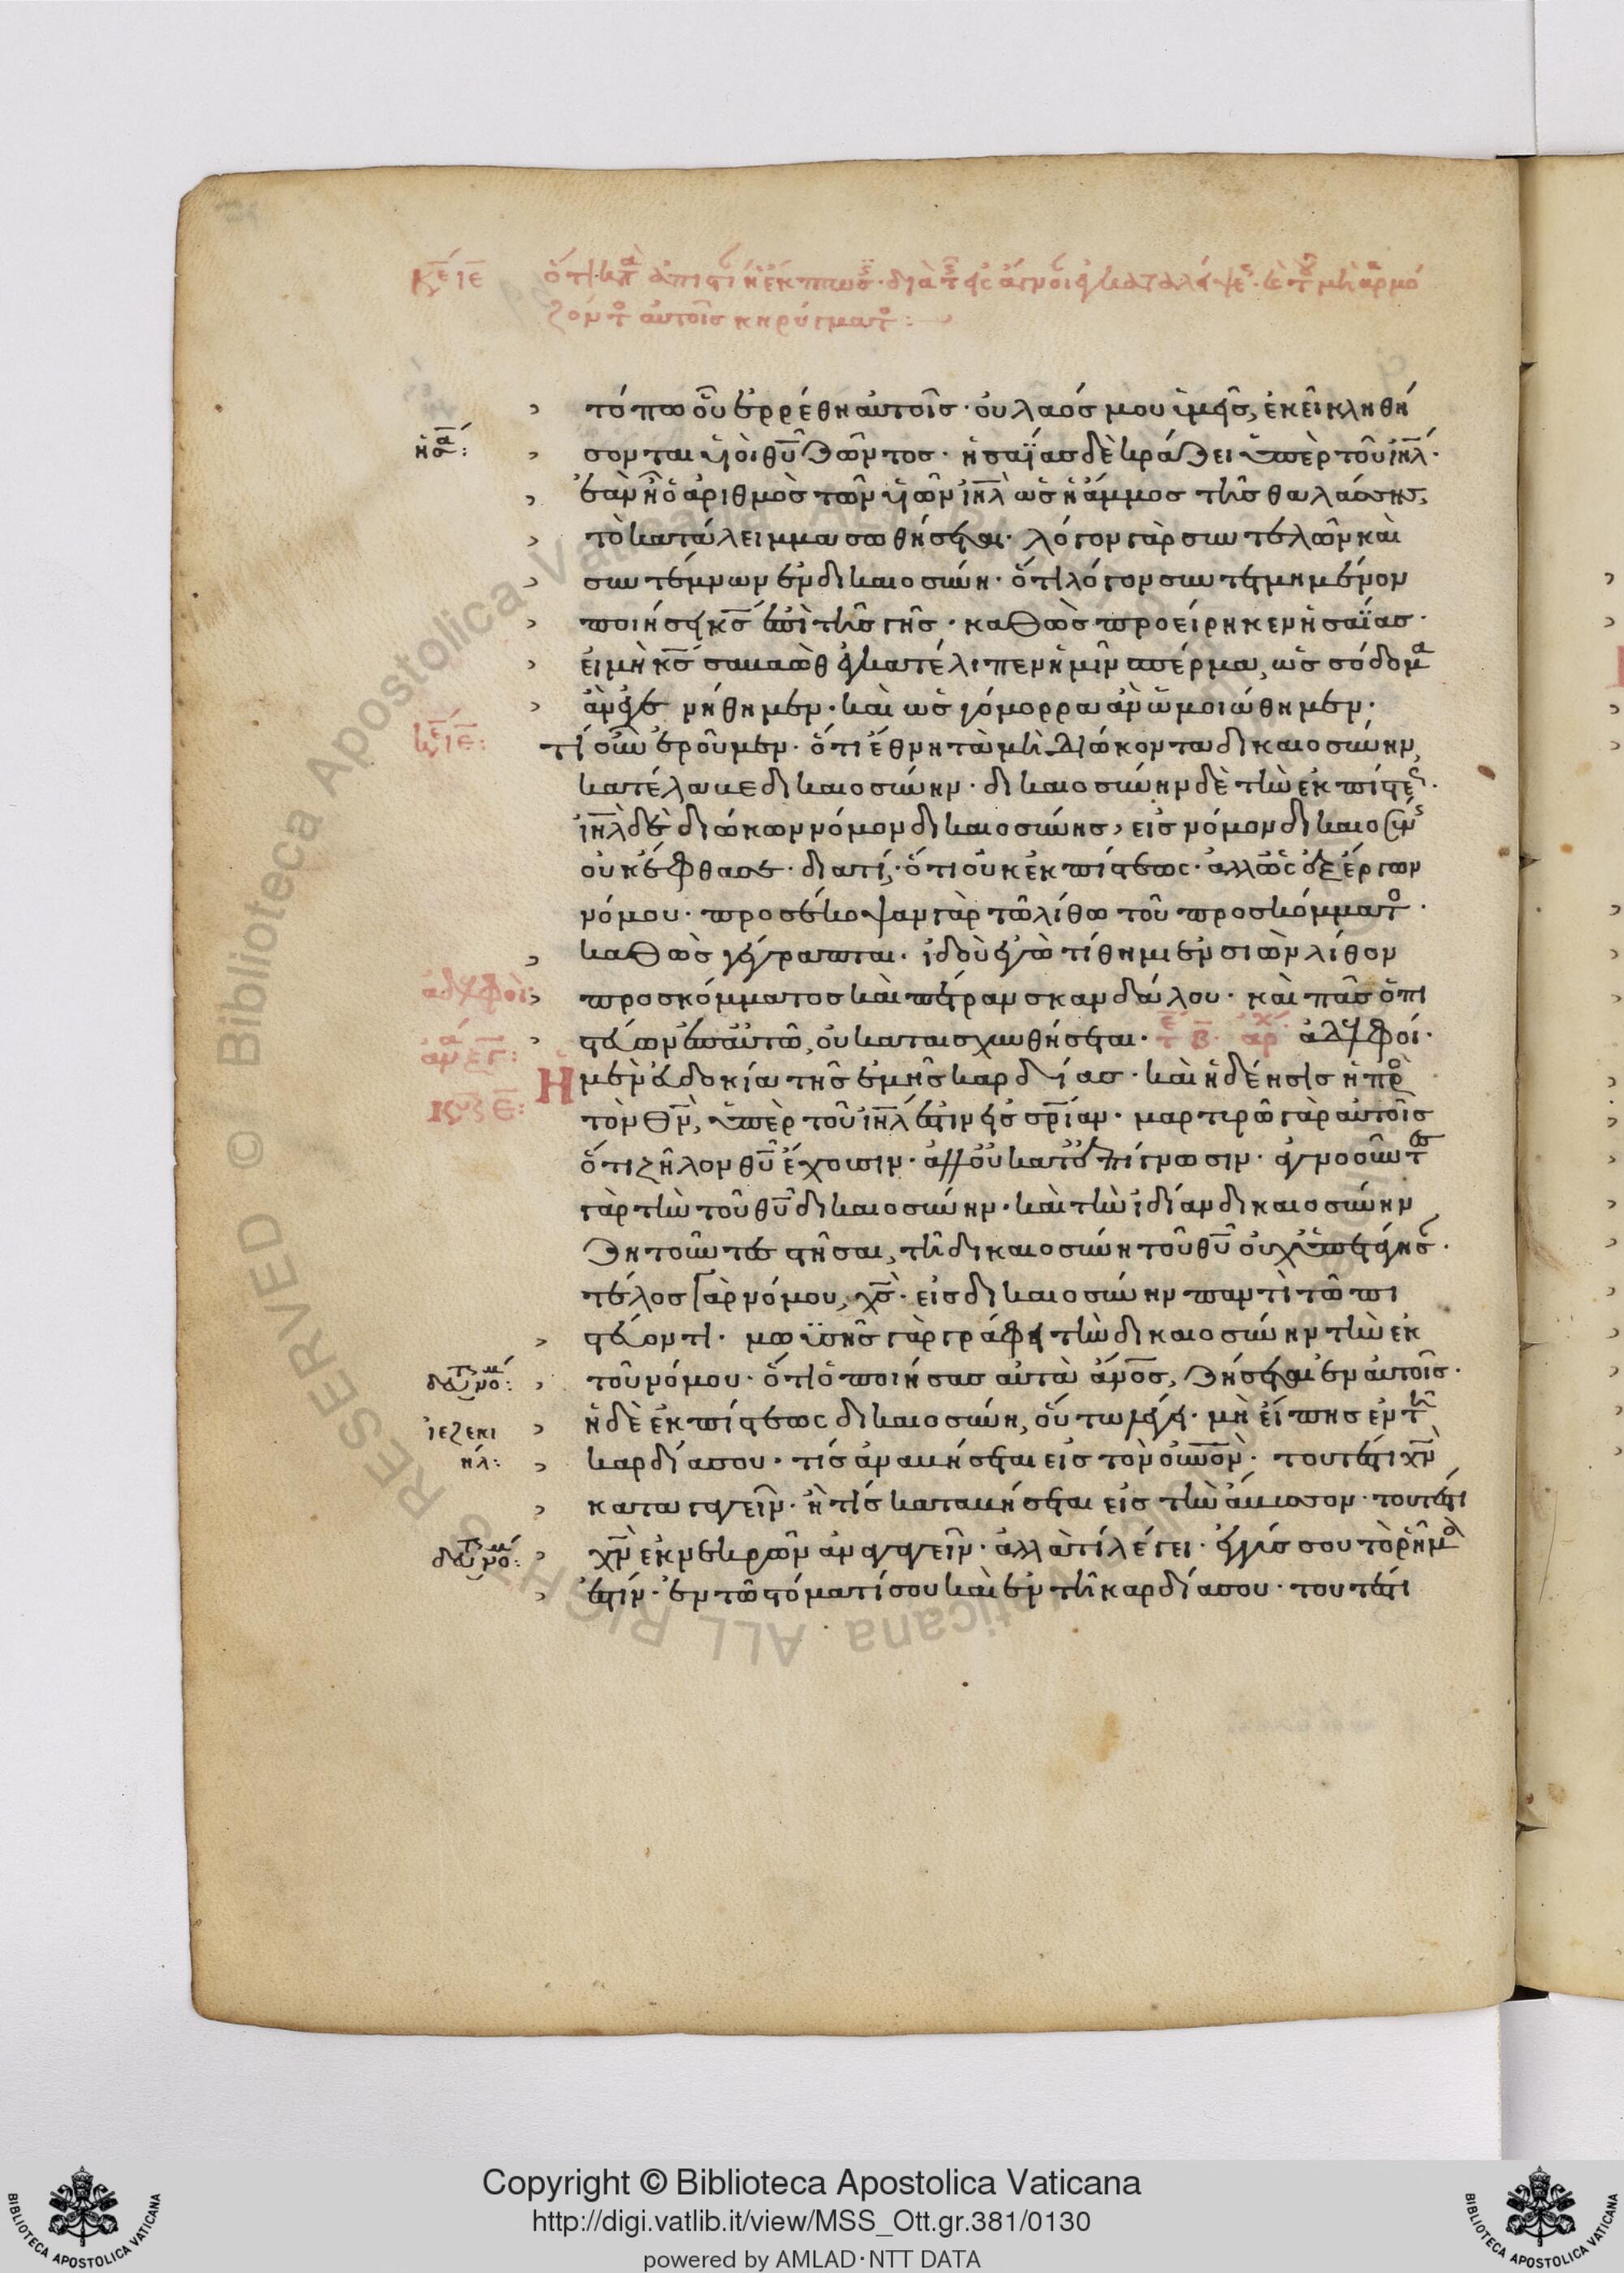 κε ιε ὅτι κατ ἀπιστ ἡ ἔκπτωσ· διὰ τ ἐξ ἀγνοι ἐγκαταλείψε· κ τ μὴ ἁρμό
ζοντ αὐτοῖς κηρύγματ:
τόπω οὗ ἐρρέθη αὐτοῖς· οὐ λαός μου ὑμεῖς, ἐκεῖ κληθή
ησα: σονται υἱοὶ θυ ζῶντος· ἡσαΐας δὲ κράζει ὑπὲρ τοῦ ιηλ·
ἐὰν ἦ ὁ ἀριθμὸς τῶν υἱῶν ιηλ ὡς ἡ ἄμμος τῆς θαλάσσης,
τὸ κατάλειμμα σωθήσεται· λόγον γὰρ συντελῶν καὶ
συντέμνων ἐν δικαιοσύνη· ὅτι λόγον συντετμημένον
ποιήσει κσ ἐπὶ τῆς γῆς· καθὼς προείρηκεν ἡσαΐας·
εἰ μὴ κσ σαβαὼθ ἐγκατέλιπεν ἡμῖν σπέρμα, ὡς σόδομα
ἂν ἐγενήθημεν· καὶ ὡς γόμορρα ἂν ὡμοιώθημεν·
κε ιε: τί οὖν ἐροῦμεν· ὅτι ἔθνη τὰ μὴ διώκοντα δικαιοσύνην,
κατέλαβε δικαιοσύνην· δικαιοσύνην δὲ τὴν ἐκ πίστε·
ιηλ δὲ διώκων νόμον δικαιοσύνης, εἰς νόμον δικαιοσύν
οὐκ ἔφθασε· διατί; ὅτι οὐκ ἐκ πίστεως· ἀλλ ὡς ἐξ ἔργων
νόμου· προσέκοψαν γὰρ τῶ λίθω τοῦ προσκόμματ·
καθὼς γέγραπται· ἰδοὺ ἐγὼ τίθημι ἐν σιὼν λίθον
ἀδελφοί: προσκόμματος καὶ πέτραν σκανδάλου· καὶ πᾶς ὁ πι
στεύων ἐπ αὐτῶ, οὐ καταισχυνθήσεται· τ ε β· αρχ ἀδελφοί·
Ἡ μὲν εὐδοκία τῆς ἐμῆς καρδίας· καὶ ἡ δέησις ἡ πρὸ
κυ ε: τὸν θν, ὑπὲρ τοῦ ιηλ ἐστιν εἰς σριαν· μαρτυρῶ γὰρ αὐτοῖς
ὅτι ζῆλον θυ ἔχουσιν· ἀλλ οὐ κατ ἐπίγνωσιν· ἀγνοοῦντ
γὰρ τὴν τοῦ θυ δικαιοσύνην· καὶ τὴν ἰδίαν δικαιοσύνην
ζητοῦντες στῆσαι, τῆ δικαιοσύνη τοῦ θυ οὐχ ὑπετάγησ·
τέλος γὰρ νόμου, χσ· εἰς δικαιοσύνην παντὶ τῶ πι
στεύοντι· μωϋσῆς γὰρ γράφει τὴν δικαιοσύνην τὴν ἐκ
δευτ νομ: τοῦ νόμου· ὅτι ὁ ποιήσας αὐτὰ ανοσ, ζήσεται ἐν αὐτοῖς·
ἰεζεκι ἡ δὲ ἐκ πίστεως δικαιοσύνη, οὕτω λέγει· μὴ εἴπης ἐν τῆ
ήλ: καρδία σου· τίς ἀναβήσεται εἰς τὸν ουνον· τουτέστι χν
καταγαγεῖν· ἢ τίς καταβήσεται εἰς τὴν ἄβυσσον· τουτέστι
δευτ νομ: χν ἐκ νεκρῶν ἀναγαγεῖν· ἀλλὰ τί λέγει· ἐγγύς σου τὸ ῥῆμα
ἐστιν· ἐν τῶ στόματί σου καὶ ἐν τῆ καρδία σου· τουτέστι
Copyright © Biblioteca Apostolica Vaticana
http://digi.vatlib.it/view/MSS_Ott.gr.381/0130
powered by AMLAD·NTT DATA
BIBLIOTECA APOSTOLICA VATICANA
BIBLIOTECA APOSTOLICA VATICANA